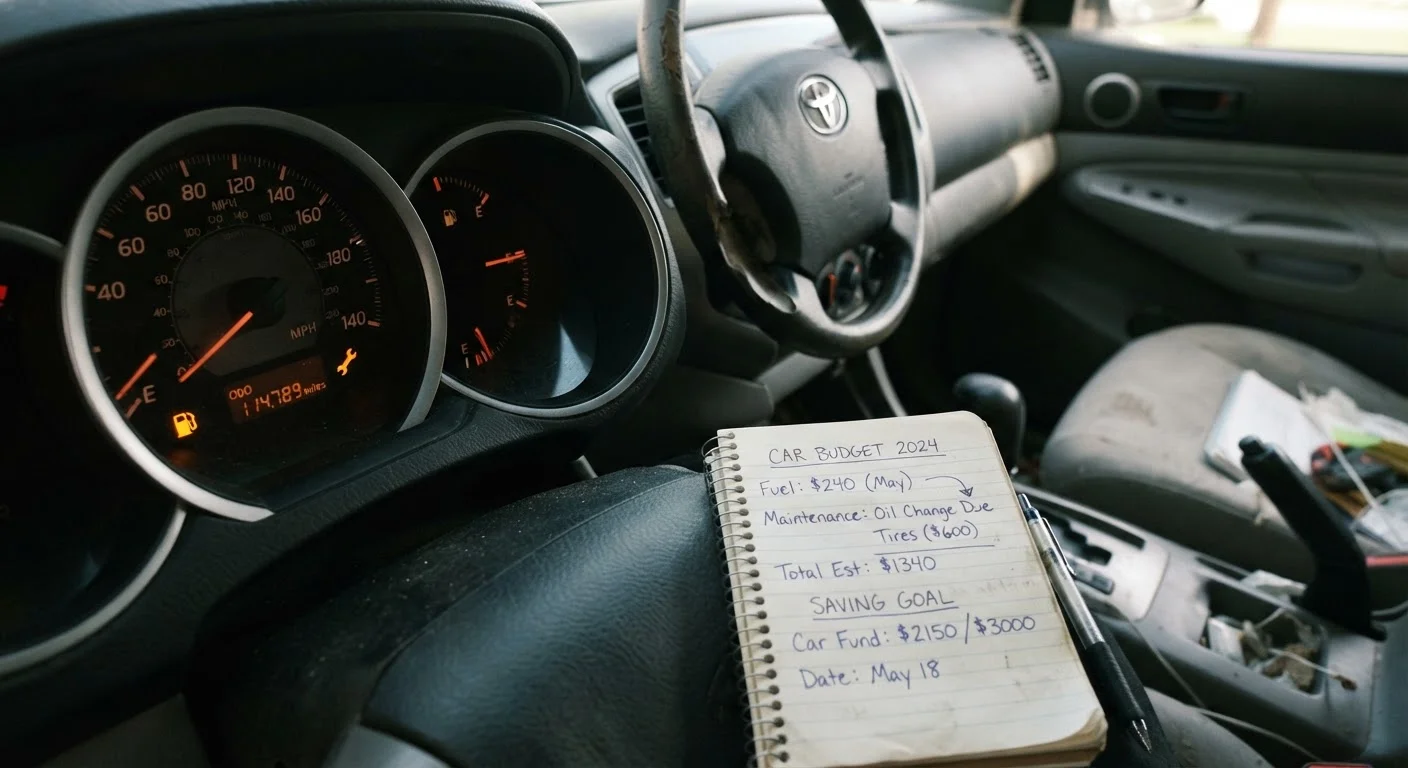 80
120
140
60
MPH
160
60
180
40
140
MPH
E
ODO
114,789 miles
E
E
E
CAR BUDGET 2024
Fuel: $240 (May)
Maintenance: Oil Change Due
Tires ($600)
Total Est: $1340
SAVING GOAL
Car Fund: $2150/$3000
Date: May 18